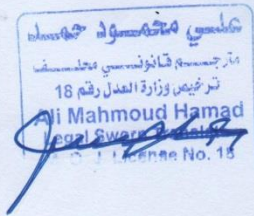 علي محمود حمد
مترجم قانوني محلف
ترخيص وزارة العدل رقم 18
Ali Mahmoud Hamad
Legal Sworn
License No. 18